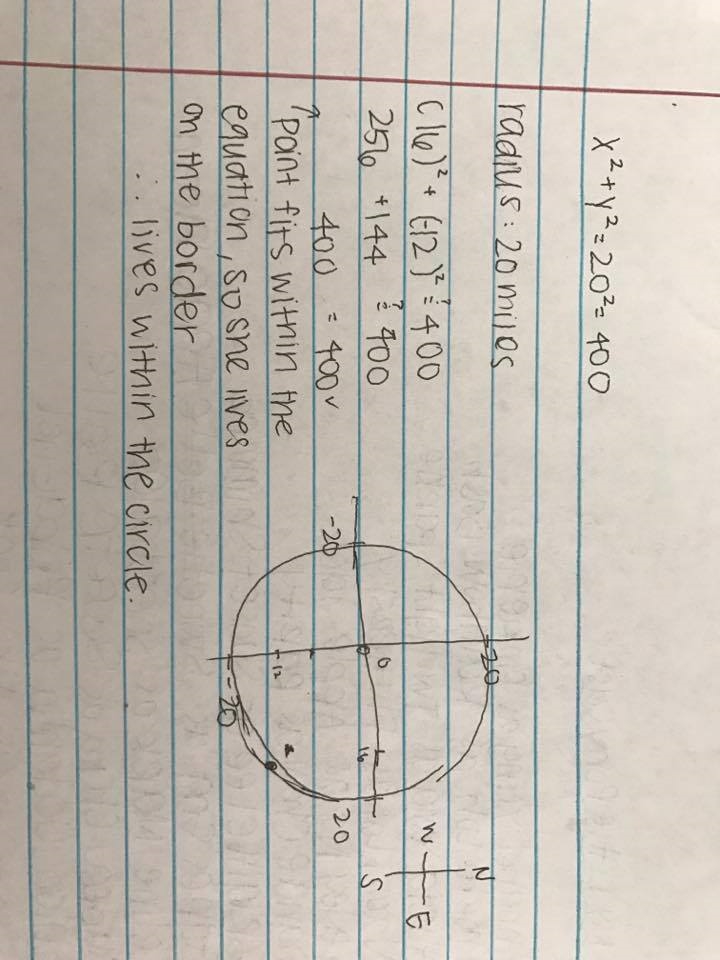 x² + y² = 20² = 400
radius: 20 miles
(16)² + (-12)² ≟ 400
256 + 144 ≟ 400
400 = 400✓
↑ point fits within the
equation, so she lives
on the border
∴ lives within the circle.
20
-20
0
16
20
-12
-20
N
W
E
S